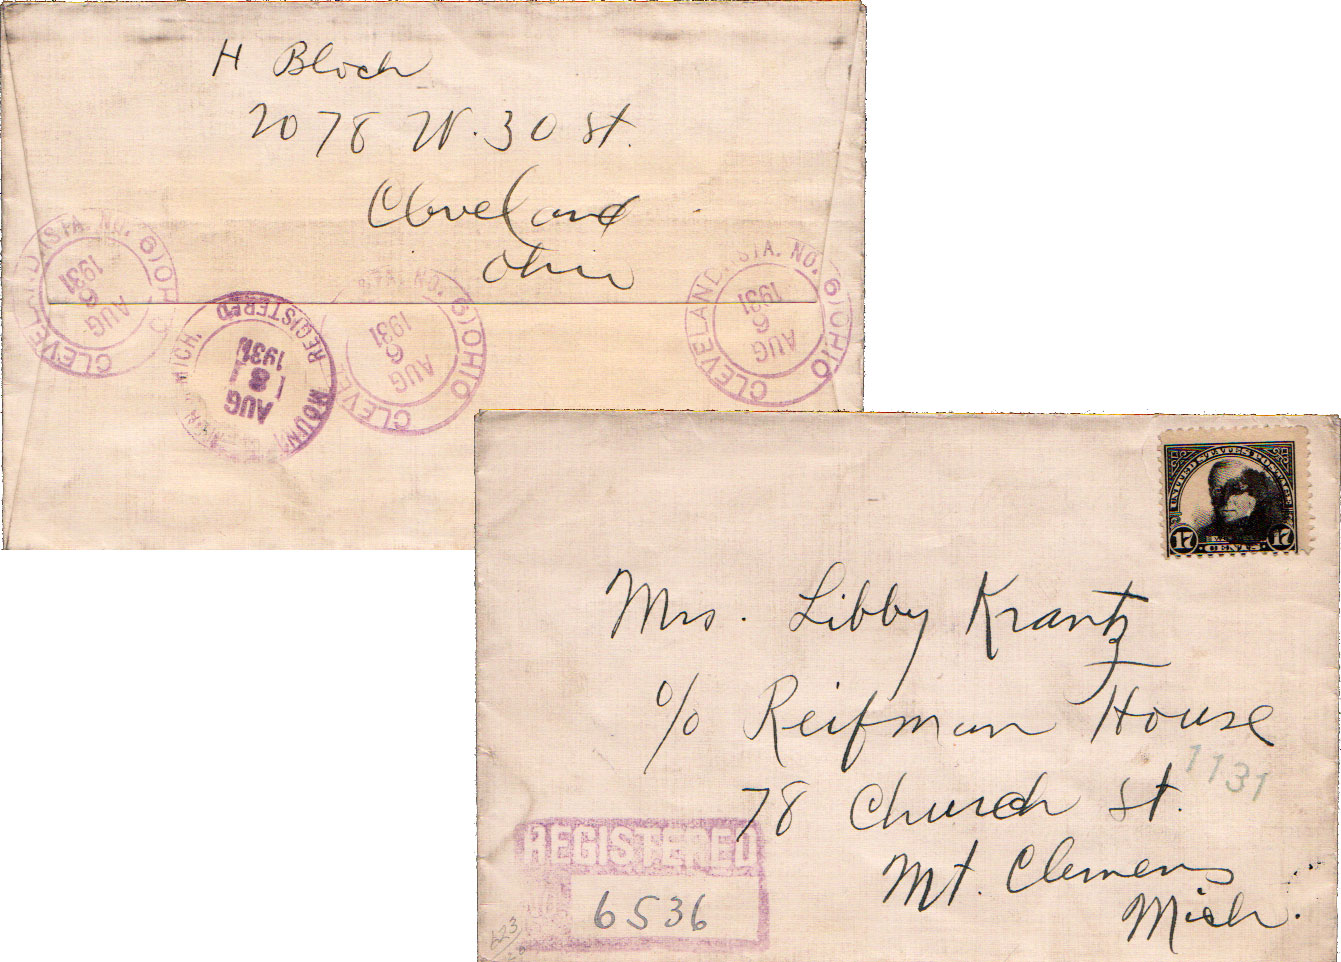 H Bloch
2078 W. 30 St.
Cleveland
Ohio
CLEVELAND (STA. NO. 6) OHIO
AUG
6
1931
REGISTERED
MOUNT MICH.
AUG
8
1931
CLEVELAND (STA. NO. 6) OHIO
AUG
6
1931
CLEVELAND (STA. NO. 6) OHIO
AUG
6
1931
UNITED STATES POSTAGE
17 CENTS 17
Mrs. Libby Krantz
c/o Reifman House
78 Church St.
Mt. Clemens
Mich.
1131
REGISTERED
NO.
6536